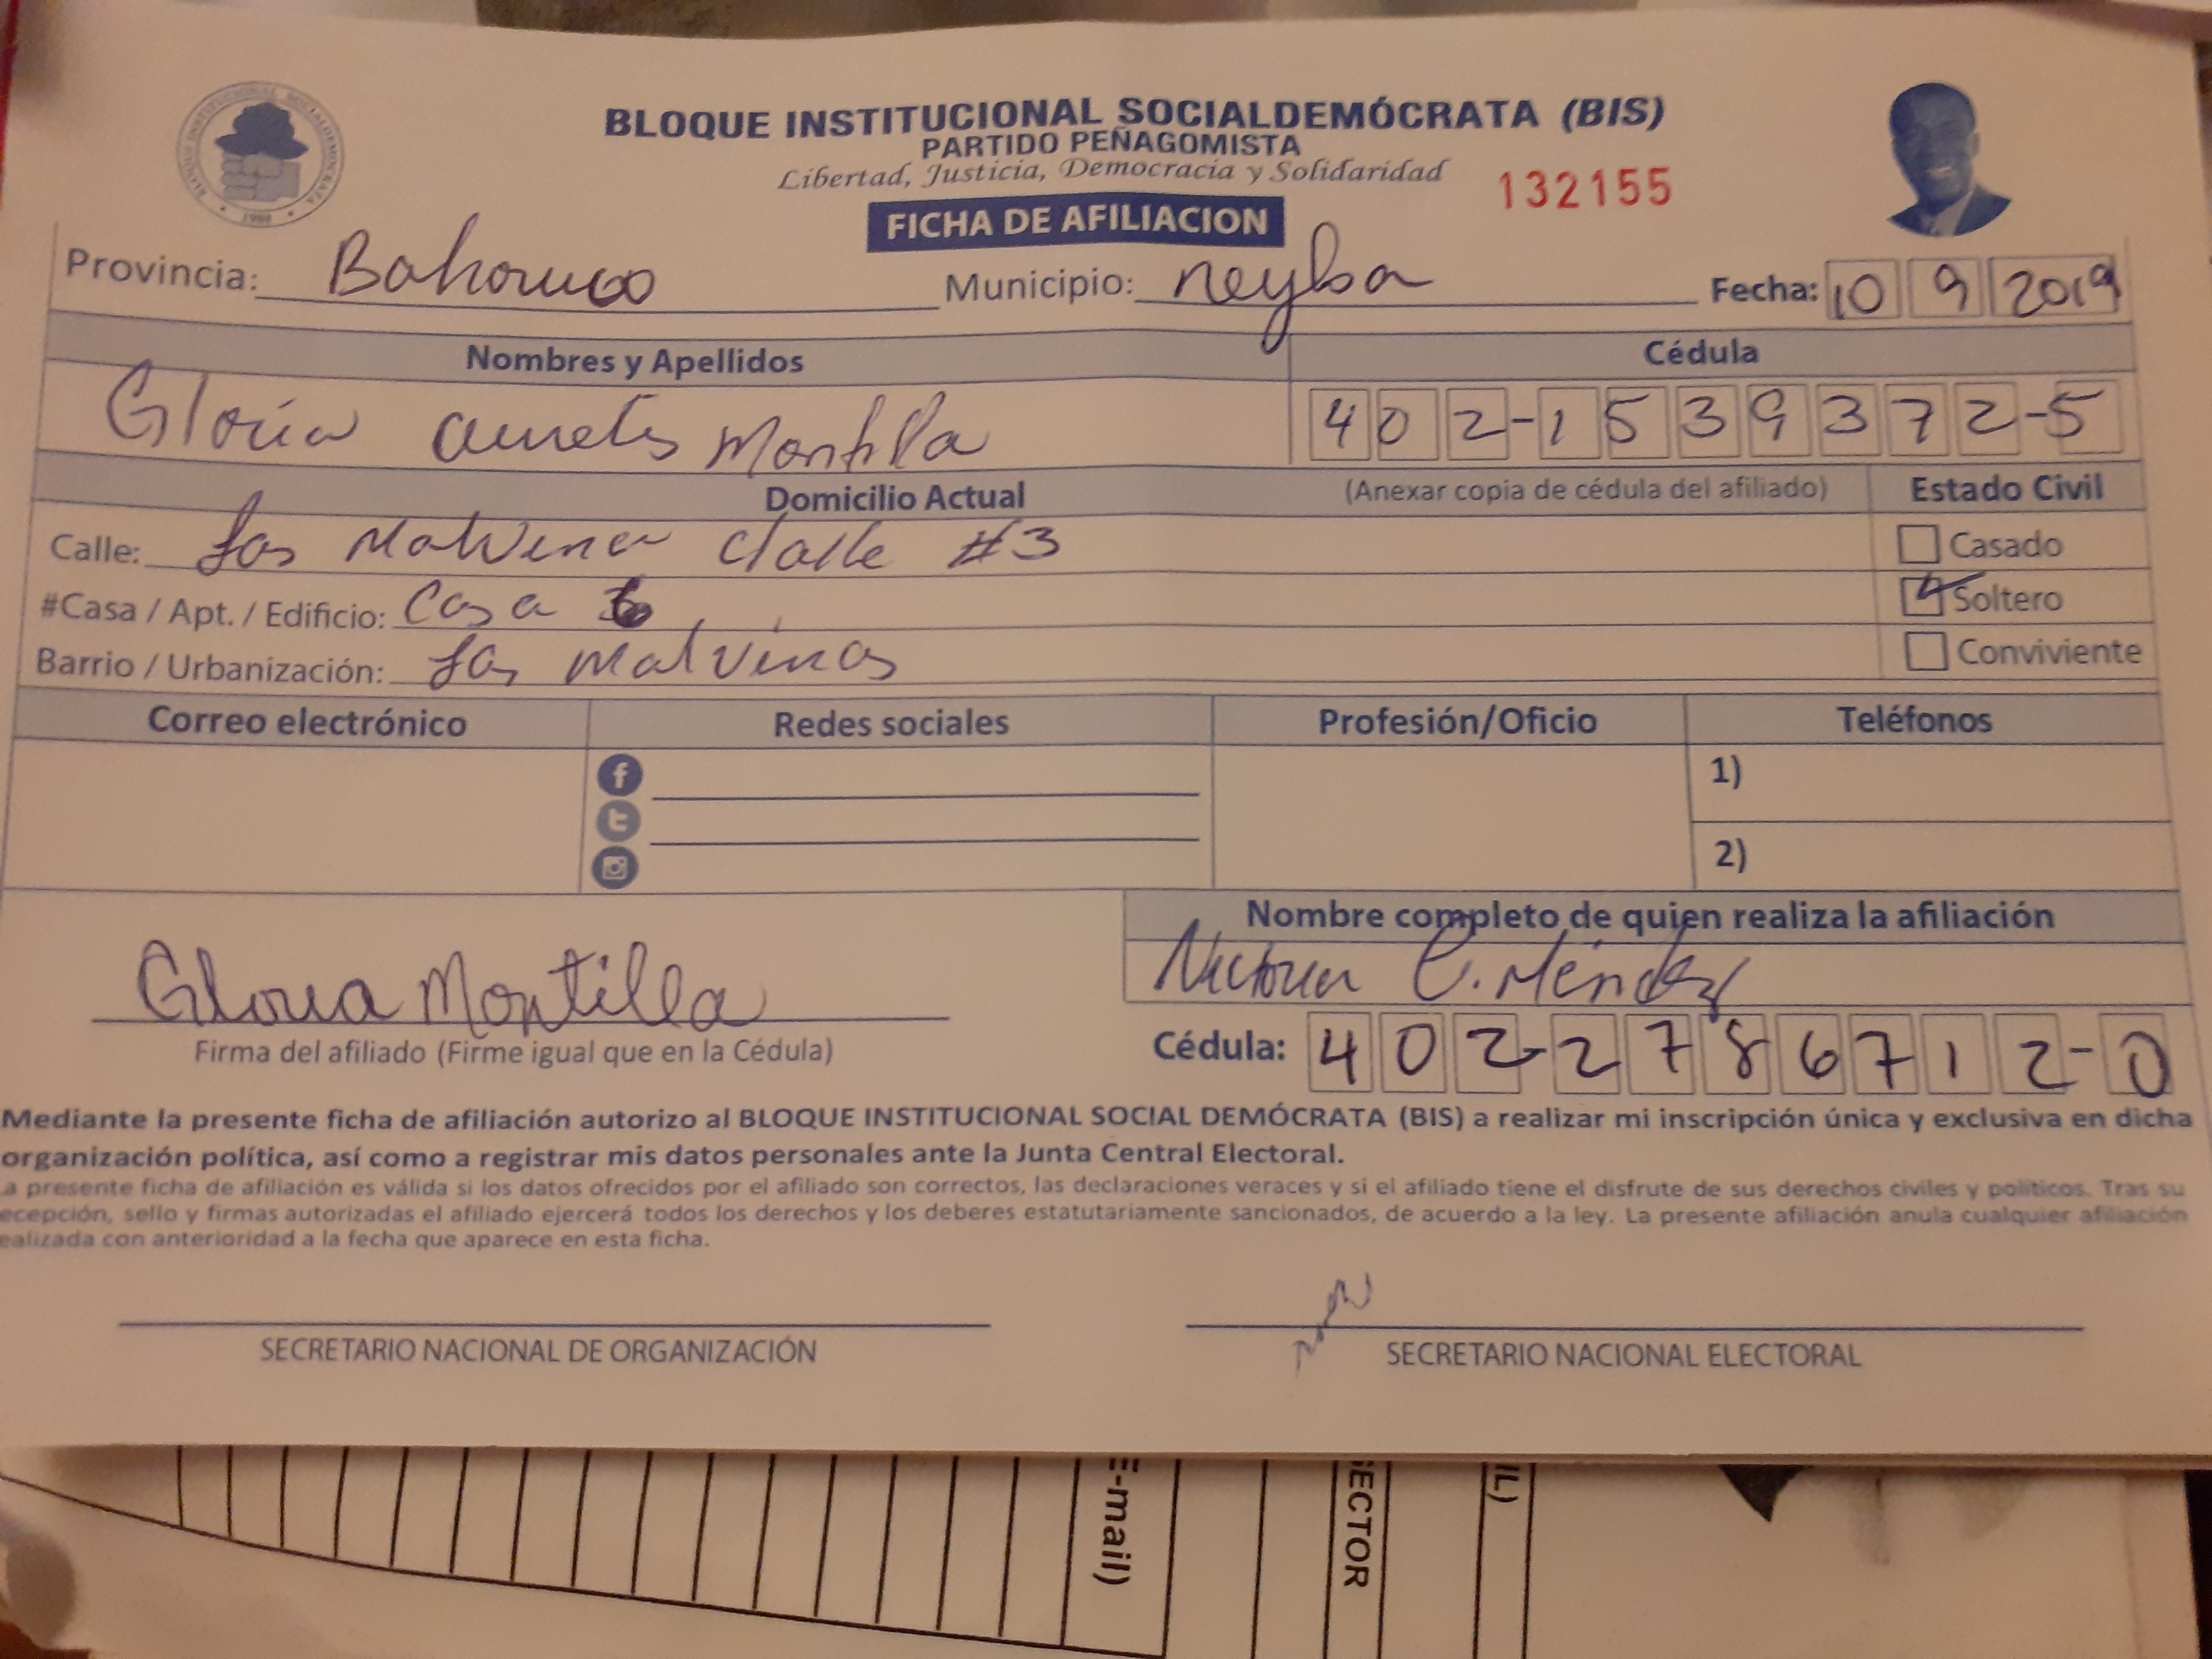 BLOQUE INSTITUCIONAL SOCIALDEMÓCRATA (BIS)
PARTIDO PEÑAGOMISTA
Libertad, Justicia, Democracia y Solidaridad
132155
FICHA DE AFILIACION
Provincia: Bahoruco Municipio: neyba Fecha: 10 9 2019
Nombres y Apellidos Cédula
Gloria Montilla 402-1539372-5
Domicilio Actual (Anexar copia de cédula del afiliado) Estado Civil
Calle: Las Malvinas Calle #3 Casado
#Casa / Apt. / Edificio: Casa Soltero
Barrio / Urbanización: Las Malvinas Conviviente
Correo electrónico Redes sociales Profesión/Oficio Teléfonos
1)
2)
Nombre completo de quien realiza la afiliación
C. Méndez
Gloria Montilla
Firma del afiliado (Firme igual que en la Cédula) Cédula: 402-2786712-0
Mediante la presente ficha de afiliación autorizo al BLOQUE INSTITUCIONAL SOCIAL DEMÓCRATA (BIS) a realizar mi inscripción única y exclusiva en dicha
organización política, así como a registrar mis datos personales ante la Junta Central Electoral.
a presente ficha de afiliación es válida si los datos ofrecidos por el afiliado son correctos, las declaraciones veraces y si el afiliado tiene el disfrute de sus derechos civiles y políticos. Tras su
ecepción, sello y firmas autorizadas el afiliado ejercerá todos los derechos y los deberes estatutariamente sancionados, de acuerdo a la ley. La presente afiliación anula cualquier afiliación
ealizada con anterioridad a la fecha que aparece en esta ficha.
SECRETARIO NACIONAL DE ORGANIZACIÓN SECRETARIO NACIONAL ELECTORAL
E-mail)
SECTOR
IL)